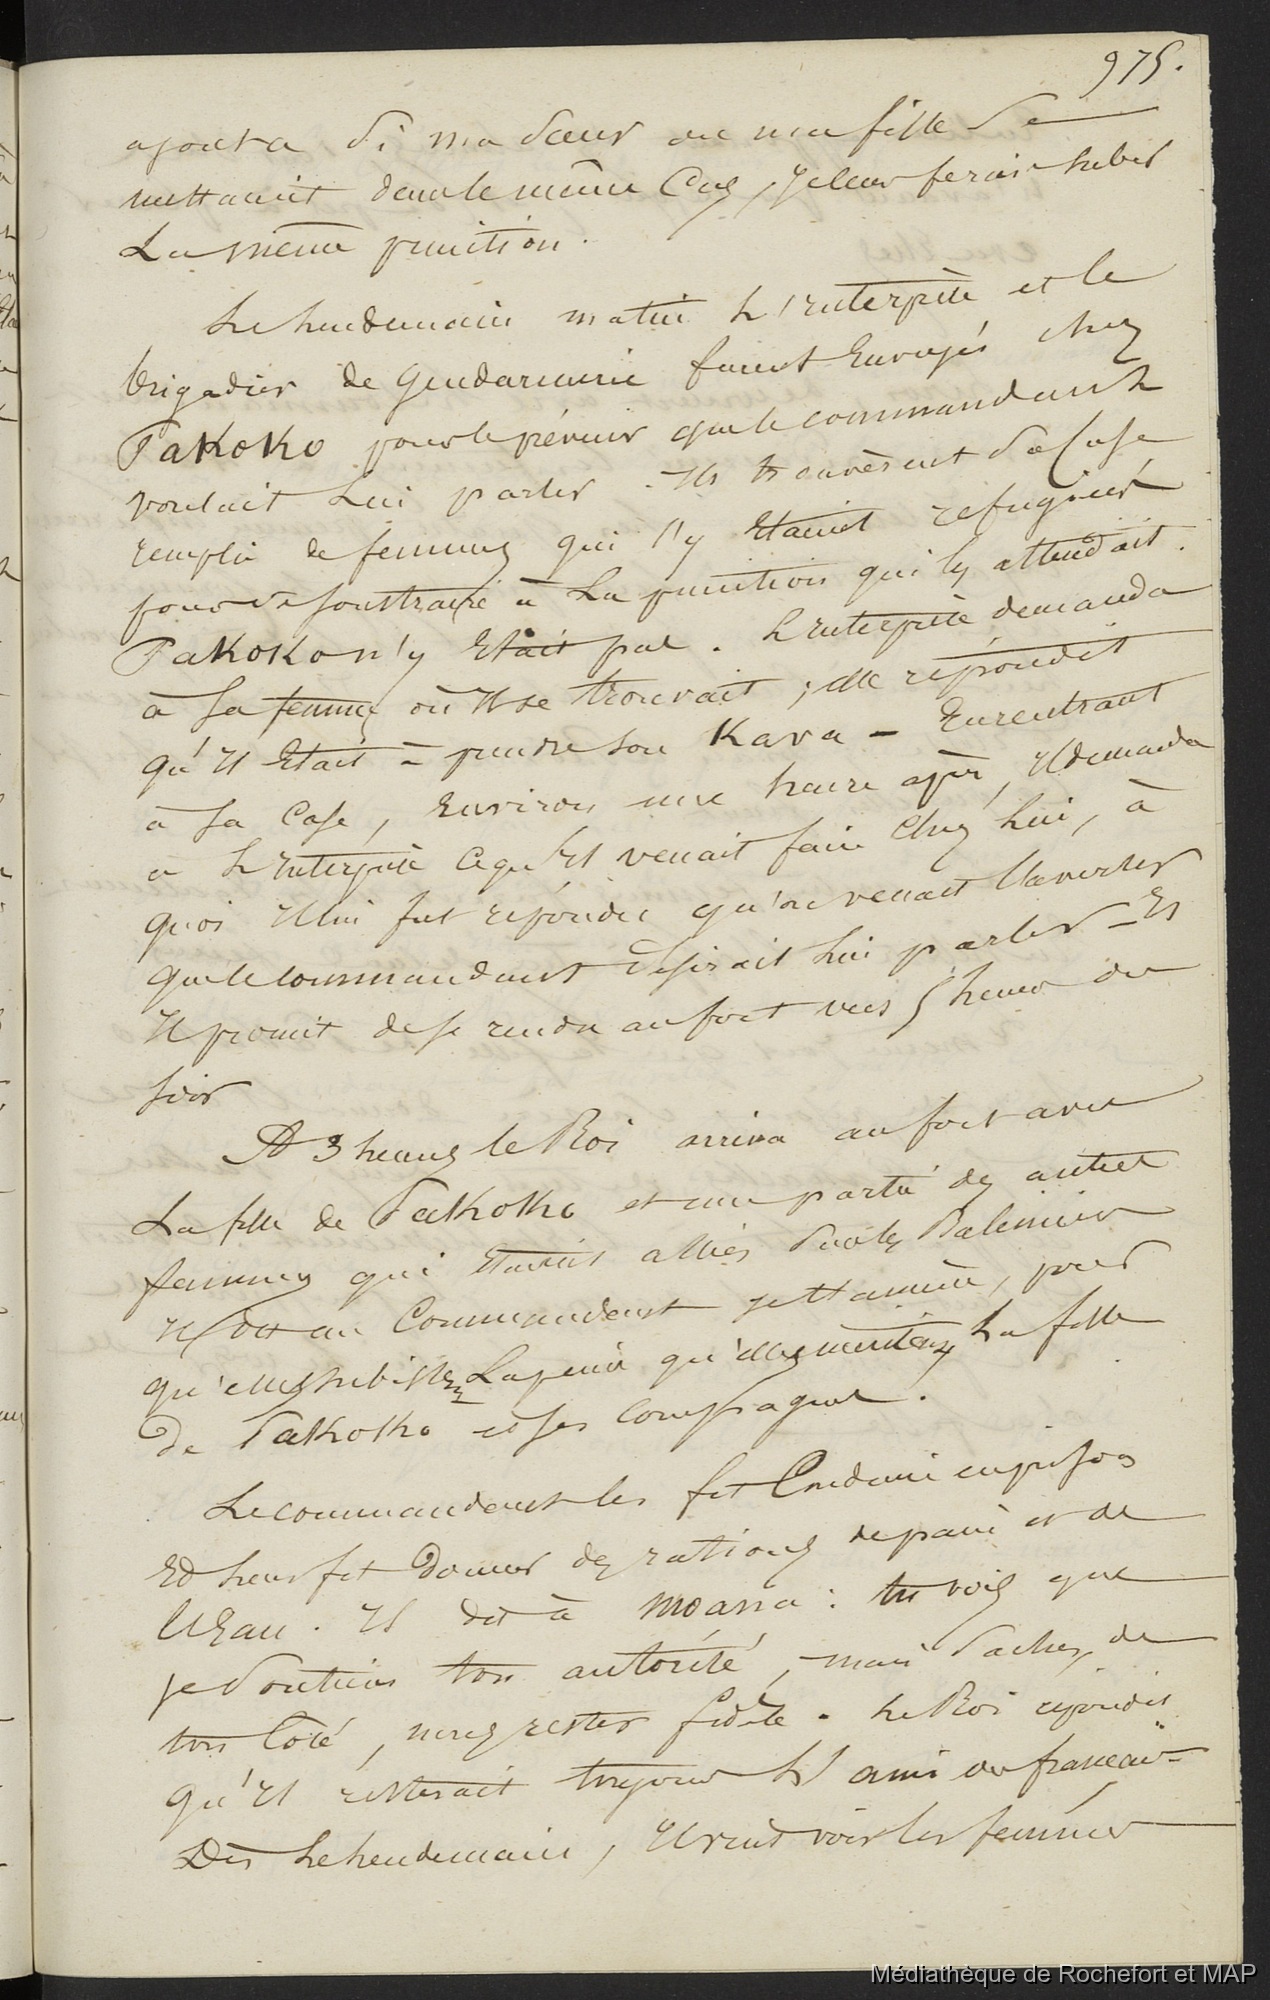 975.
ajouta Si ma Sœur ou ma fille Se
mettaient dans le même Cas, Je leur ferais subir
La même punition.
Le Lendemain matin L'Interprète et le
brigadier de Gendarmerie furent Envoyés chez
Pakoko pour le prévenir que le commandant
voulait Lui parler. Ils trouvèrent Sa Case
remplie de femmes qui s'y Etaient refugiées
pour se soustraire à La punition qui les attendait.
Pakoko n'y Etait pas. L'Interprète demanda
à sa femme où Il se trouvait ; elle répondit
qu'Il Etait à prendre son Kava - En rentrant
à sa Case, Environ une heure après, Il demanda
à L'Interprète ce qu'Il venait faire Chez Lui, à
quoi Il lui fut répondu qu'on venait l'avertir
que le commandant désirait Lui parler - Et
Il promit de se rendre au fort vers 5 heures du
soir
A 3 heures le Roi arriva au fort avec
La fille de Pakoko et une partie des autres
femmes qui Etaient allées Sur les Baleiniers
Il dit au Commandant je t'amène, pour
qu'elles subissent La peine qu'elles méritent, La fille
de Pakoko et ses Compagnes.
Le commandant les fit Conduire en prison
Et Leur fit Donner des rations de pain et de
l'Eau. Il dit à Moana : tu vois que
je Soutiens ton autorité, mais Sache, de
ton Coté, nous rester fidèle. Le Roi répondit
qu'Il resterait toujours L'ami des français -
Dès Le Lendemain, Il vint voir les femmes
Médiathèque de Rochefort et MAP